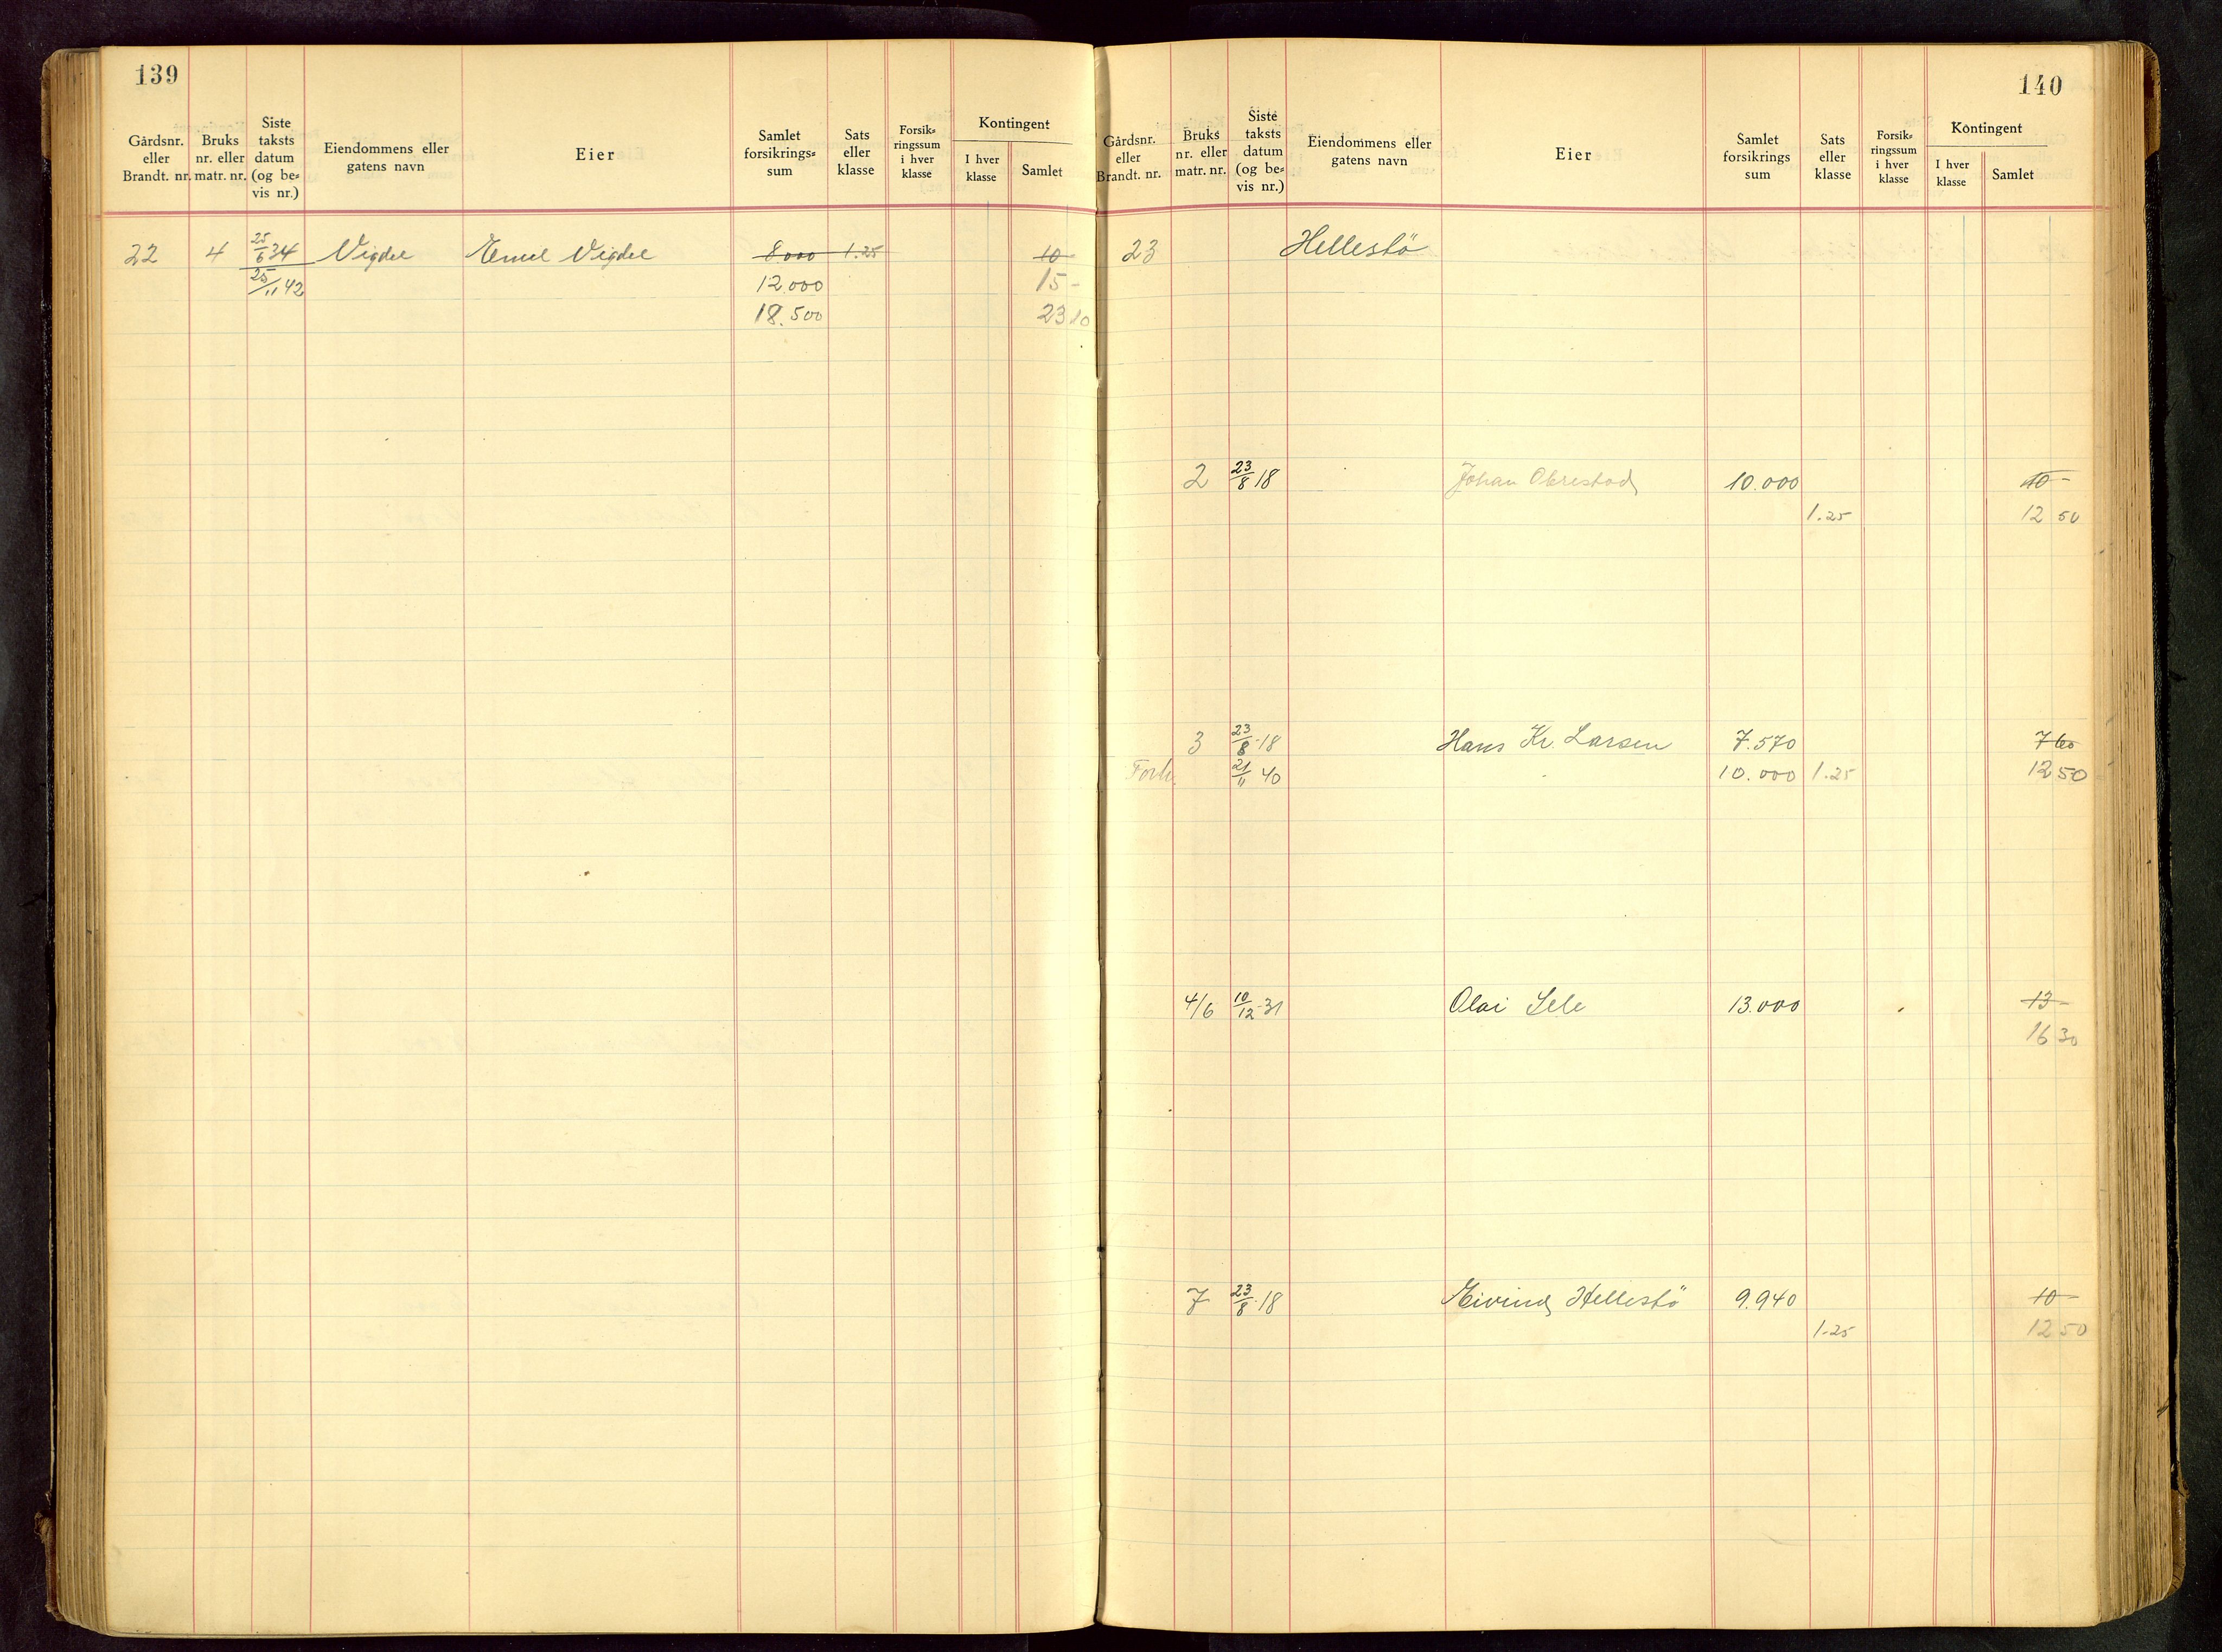 139
Gårdsnr. eller Brandt. nr. Bruks nr. eller matr. nr. Siste taksts datum (og be= vis nr.) Eiendommens eller gatens navn Eier Samlet forsikrings= sum Sats eller klasse Forsik= ringssum i hver klasse Kontingent I hver klasse Samlet
22 4 25/6 34 Vigdel Emil Vigdel 8000 1.25 10-
25/11 42 12.000 15-
18.500 23 10
140
Gårdsnr. eller Brandt. nr. Bruks nr. eller matr. nr. Siste taksts datum (og be= vis nr.) Eiendommens eller gatens navn Eier Samlet forsikrings sum Sats eller klasse Forsik= ringssum i hver klasse Kontingent I hver klasse Samlet
23 Hellestö
2 23/8 18 Johan Obrestad 10.000 10-
1.25 12 50
3 23/8-18 Hans Kr. Larsen 7.570 7 60
Forh. 21/11 40 10.000 1.25 12 50
4/6 10/12-31 Olai Sele 13.000 13-
16 30
7 23/8-18 Eivind Hellestö 9.940 10-
1-25 12 50